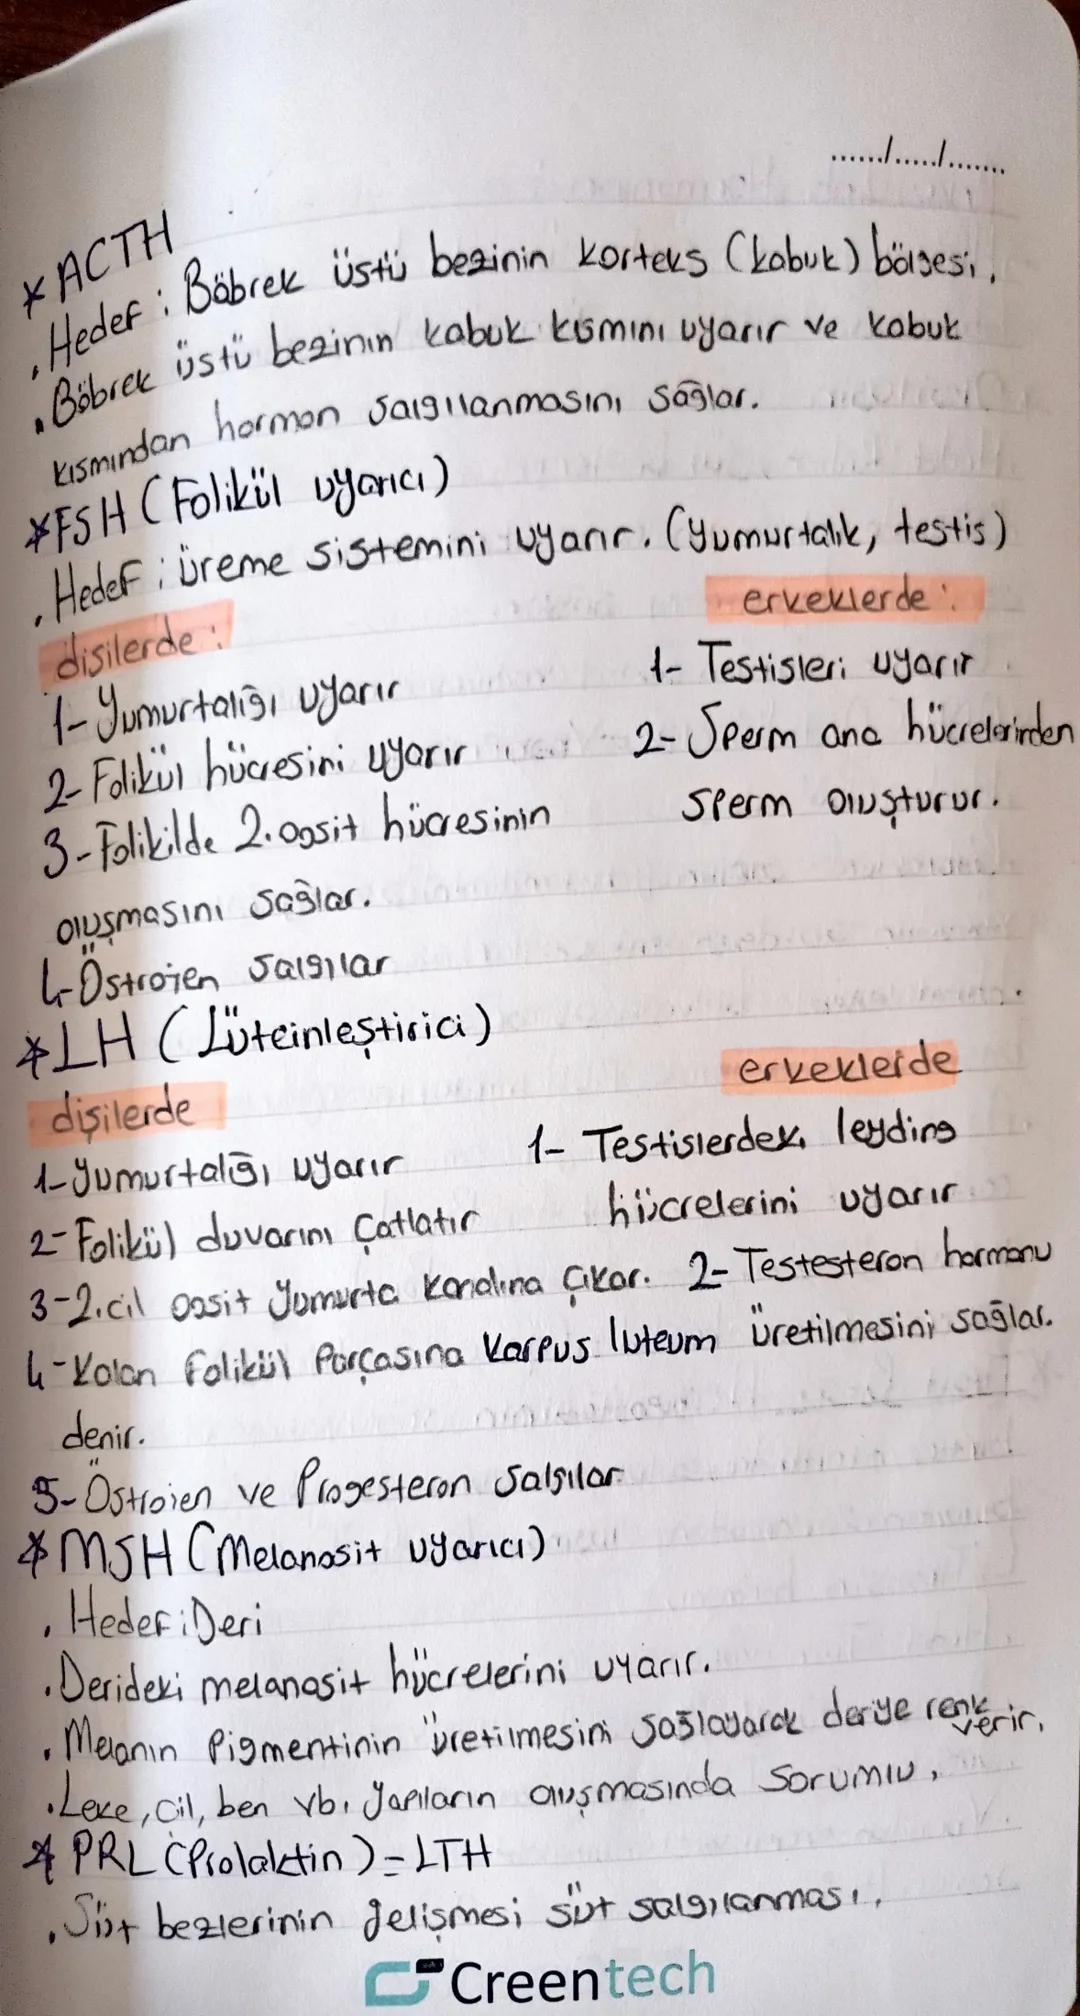 ....../....../.......
* ACTH
. Hedef : Böbrek üstü bezinin korteks (kabuk) bölgesi.
. Böbrek üstü bezinin kabuk kısmını uyarır ve kabuk
kısmından hormon salgılanmasını sağlar.
* FSH (Folikül uyarıcı)
. Hedef : üreme sistemini uyarır. (yumurtalık, testis)
dişilerde :
1- Yumurtalığı uyarır
2- Folikül hücresini uyarır
3- Folikilde 2. oosit hücresinin
oluşmasını sağlar.
4- Östrojen salgılar
erkeklerde :
1- Testisleri uyarır
2- Sperm ana hücrelerinden
sperm oluşturur.
* LH (Lüteinleştirici)
dişilerde
1- Yumurtalığı uyarır
2- Folikül duvarını çatlatır
3- 2.cil oosit yumurta kanalına çıkar.
4- Kalan folikül parçasına karpus luteum
denir.
5- Östrojen ve Progesteron salgılar
erkeklerde
1- Testislerdeki leyding
hücrelerini uyarır
2- Testesteron hormonu
üretilmesini sağlar.
* MSH (Melanosit uyarıcı)
. Hedef : Deri
. Derideki melanosit hücrelerini uyarır.
. Melanin pigmentinin üretilmesini sağlayarak deriye renk verir.
. Leke, çil, ben vb. yapıların oluşmasında sorumlu.
* PRL (Prolaktin) = LTH
. Süt bezlerinin gelişmesi süt salgılanması.
Creentech